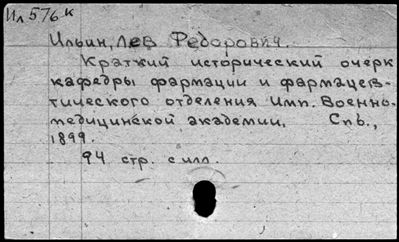 Ил 576 к
Ильин, Лев Федорович.
Краткий исторический очерк
кафедры фармации и фармацев-
тического отделения Имп. Военно-
медицинской академии. Спб.,
1899.
94 стр. с илл.